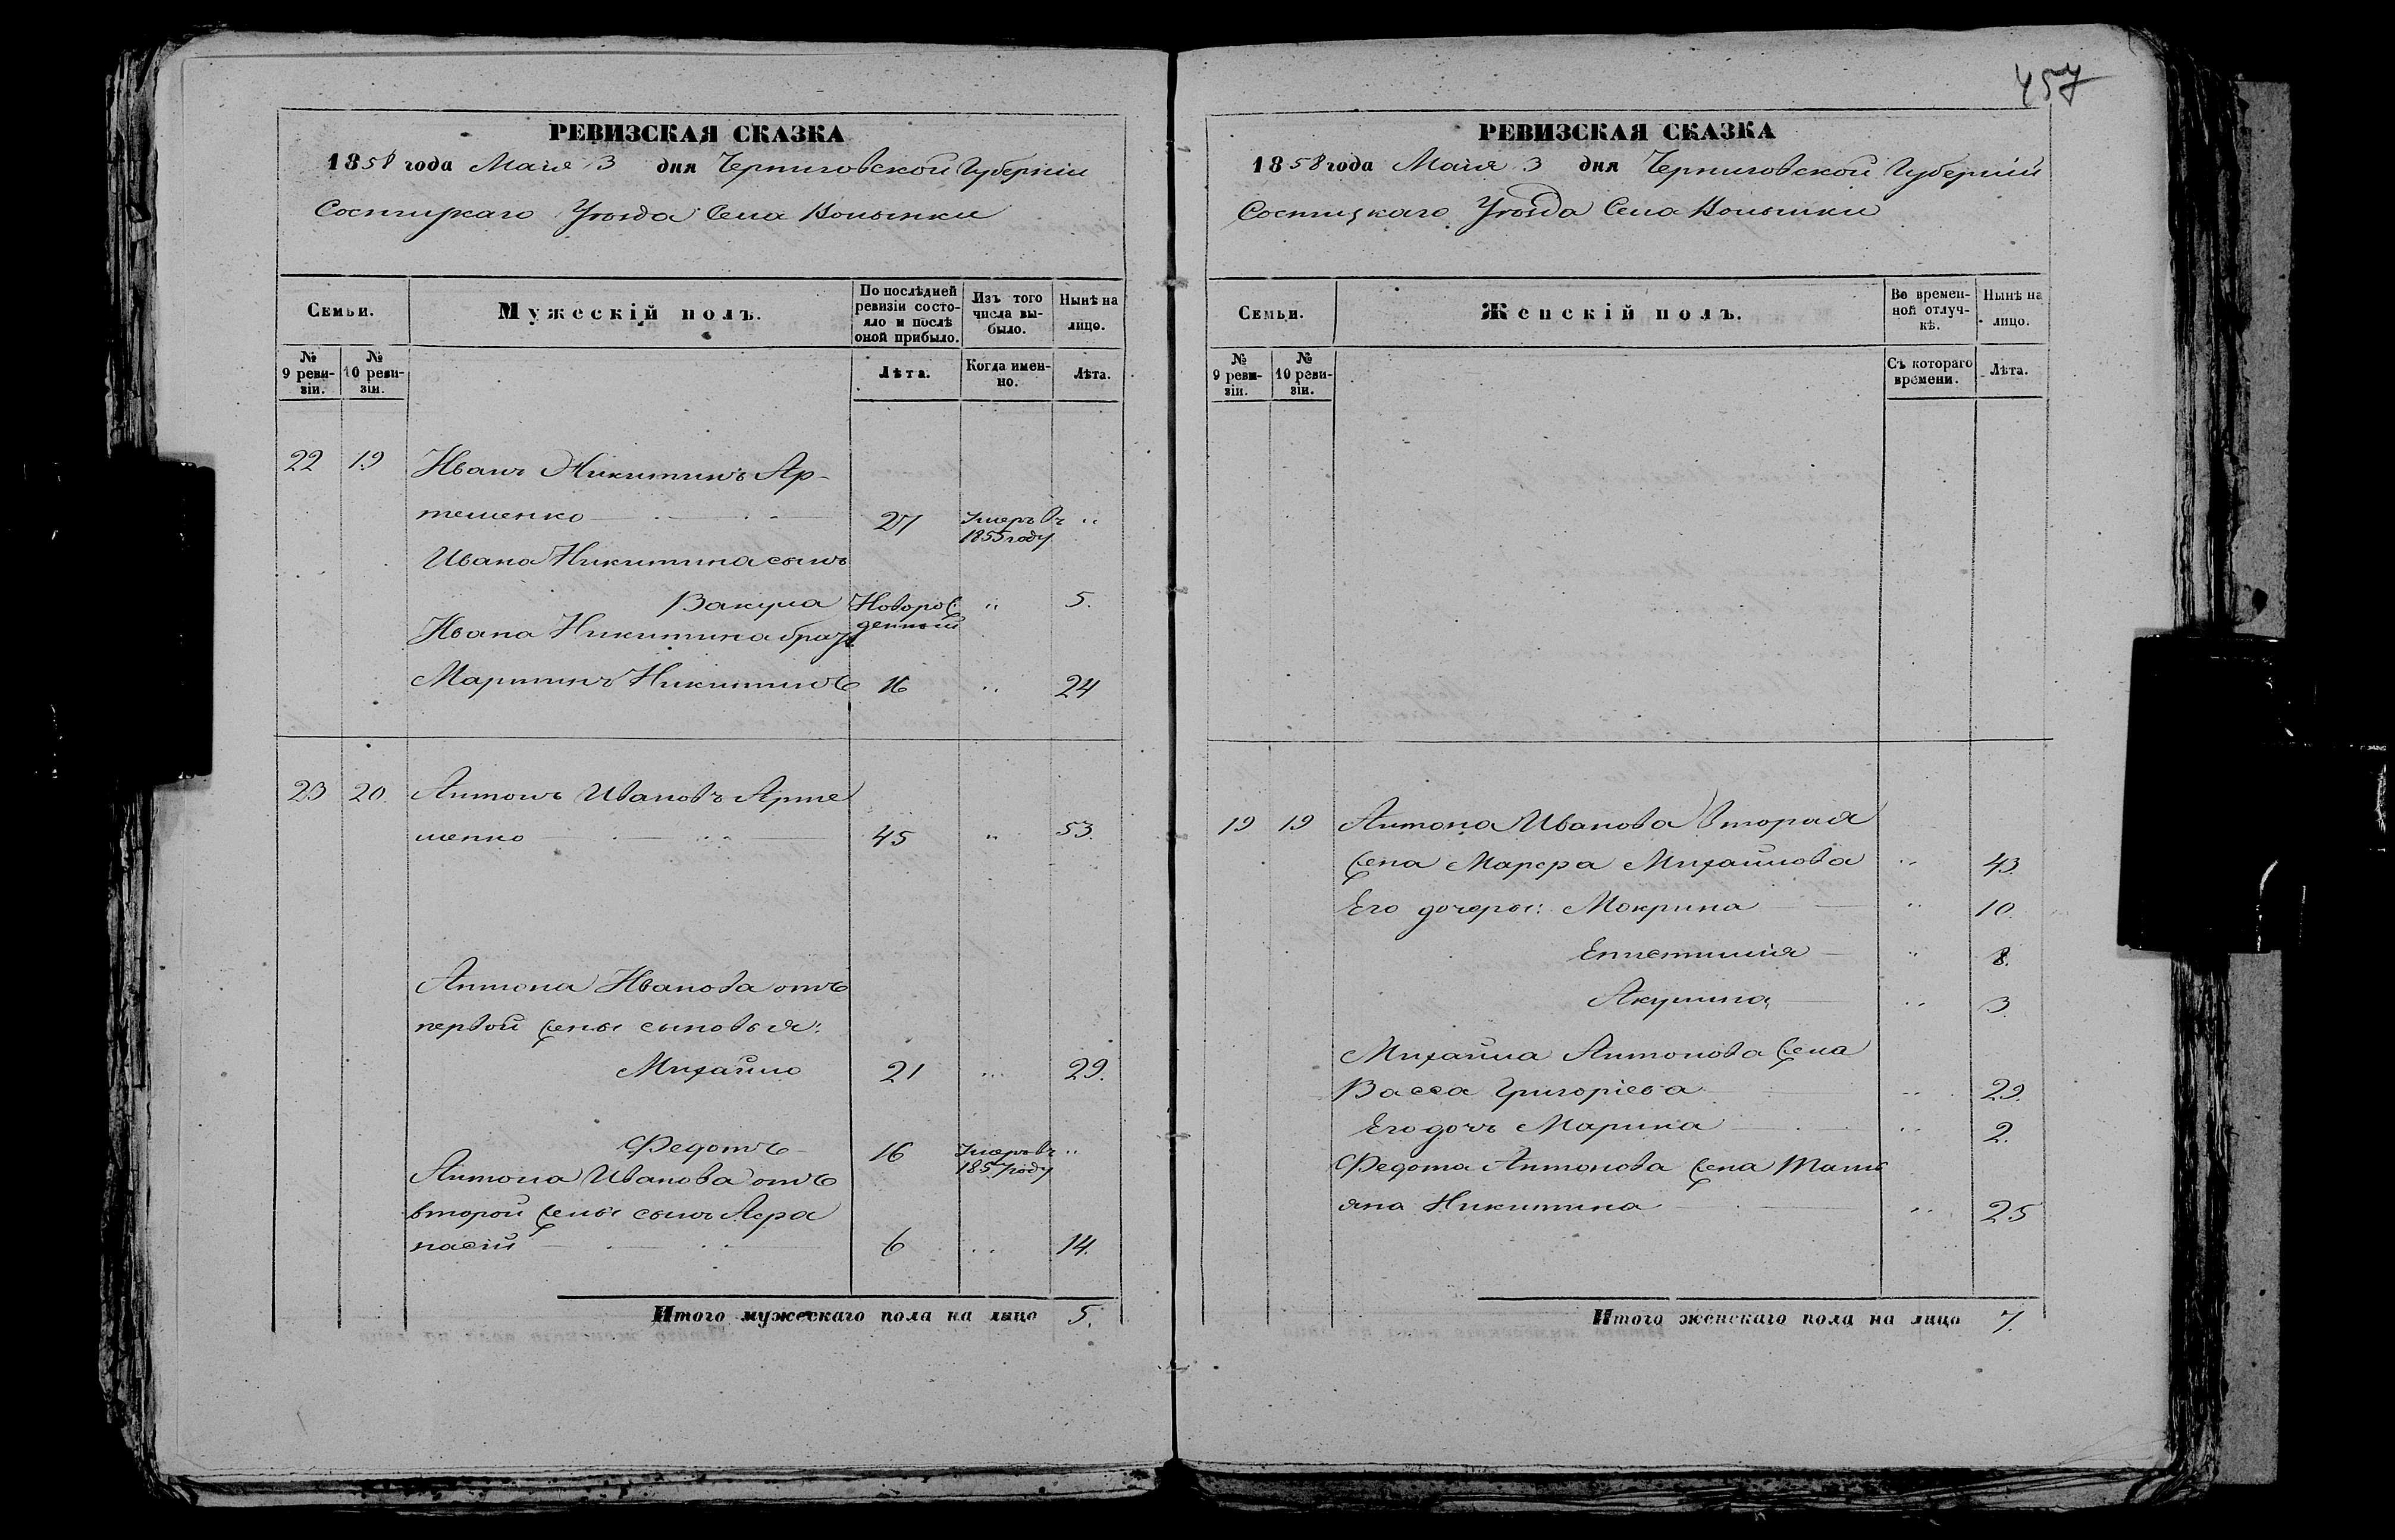 457
РЕВИЗСКАЯ СКАЗКА
1858 года Маія 3 дня Черниговской Губерніи
Сосницкаго Уѣзда Села Волынки
Семьи.
Мужескій полъ.
По послѣдней ревизіи состояло и послѣ оной прибыло.
Изъ того числа выбыло.
Нынѣ на лицо.
№ 9 ревизіи.
№ 10 ревизіи.
Лѣта.
Когда именно.
Лѣта.
22 19 Иванъ Никитинъ Ар-
теменко 27 Умеръ въ 1855 году "
Ивана Никитина сынъ
Вакула Новорожденный " 5.
Ивана Никитина братъ
Мартинъ Никитинъ 16 " 24
23 20. Антонъ Ивановъ Арте
менко 45 " 53.
Антона Иванова отъ
первой жены сыновья:
Михайло 21 " 29.
Федотъ 16 Умеръ въ 1857 году "
Антона Иванова отъ
второй жены сынъ Афа
насій 6 " 14.
Итого мужескаго пола на лицо 5.
РЕВИЗСКАЯ СКАЗКА
1858 года Маія 3 дня Черниговской Губерніи
Сосницкаго Уѣзда Села Волынки
Семьи.
Женскій полъ.
Во временной отлучкѣ.
Нынѣ на лицо.
№ 9 ревизіи.
№ 10 ревизіи.
Съ котораго времени.
Лѣта.
19 19 Антона Иванова вторая
жена Марфа Михайлова " 43.
Его дочеры: Мокрина " 10
Епистимія " 8.
Акулина " 3.
Михайла Антонова жена
Васса Григоріева " 29.
Его дочь Марина " 2.
Федота Антонова жена Тать
яна Никитина " 25
Итого женскаго пола на лицо 7.